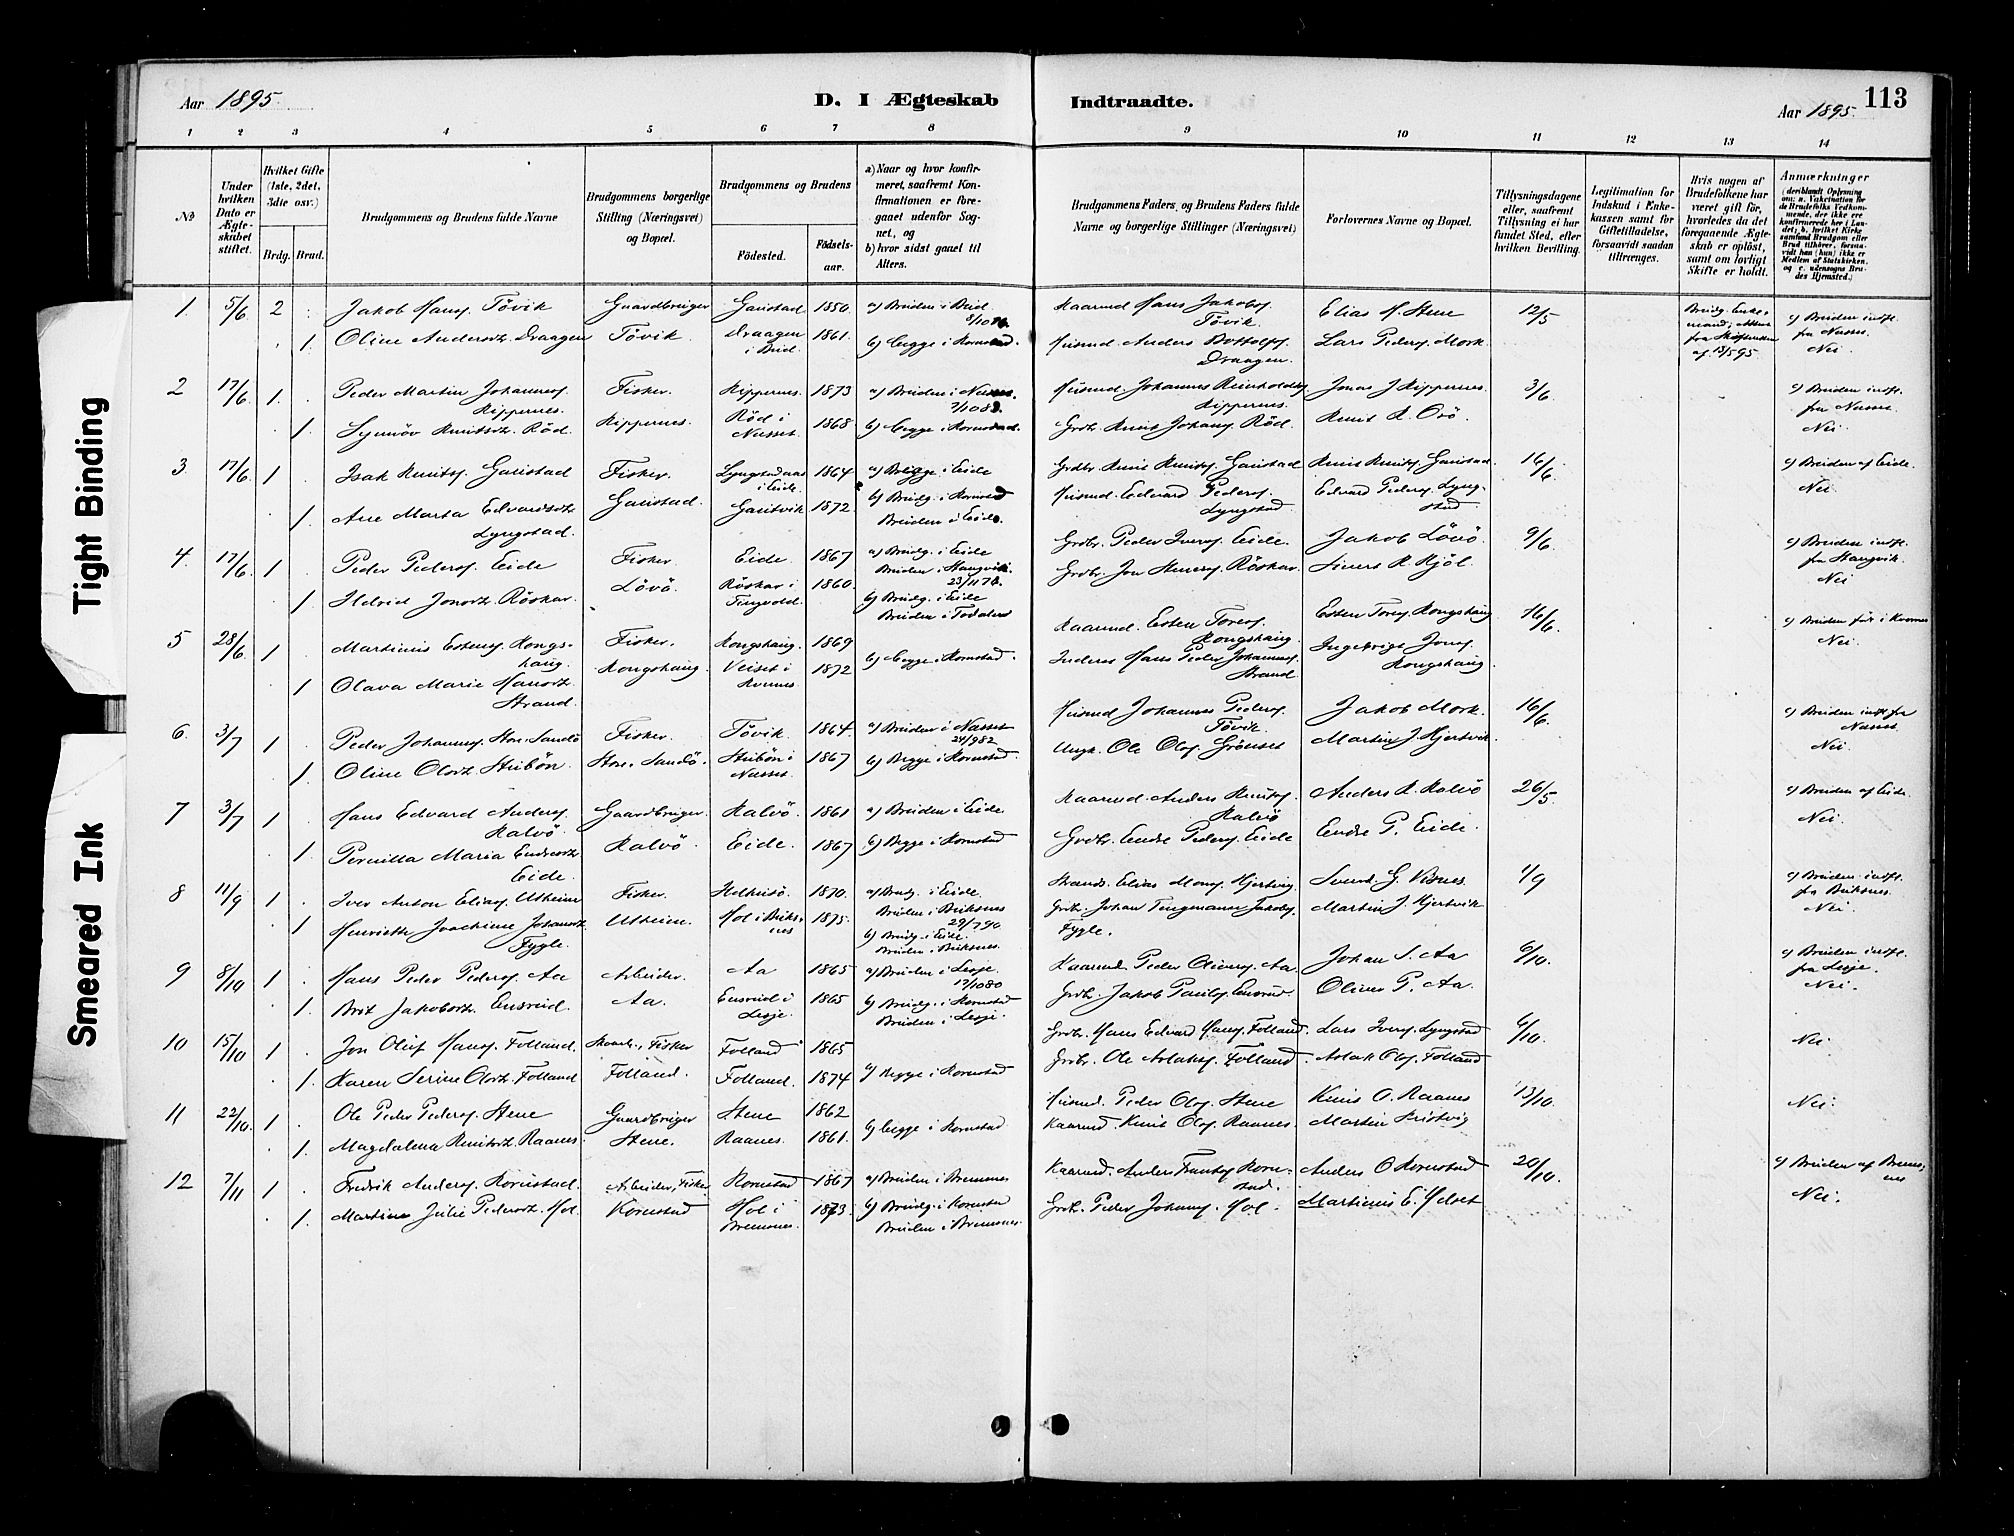 Tight Binding
Smeared Ink
Aar 1895.
D. I Ægteskab
Indtraadte.
Aar 1895.
113
1 2 3 4 5 6 7 8 9 10 11 12 13 14
No
Under hvilken Dato er Ægteskabet stiftet.
Hvilket Gifte (1ste, 2det, 3die osv.)
Brdg. Brud.
Brudgommens og Brudens fulde Navne
Brudgommens borgerlige Stilling (Næringsvei) og Bopæl.
Brudgommens og Brudens
Fødested.
Fødselsaar.
a) Naar og hvor konfirmeret, saafremt Konfirmationen er foregaaet udenfor Sognet, og
b) hvor sidst gaaet til Alters.
Brudgommens Faders, og Brudens Faders fulde Navne og borgerlige Stillinger (Næringsvei)
Forlovernes Navne og Bopæl.
Tillysningsdagene eller, saafremt Tillysning ei har fundet Sted, efter hvilken Bevilling.
Legitimation for Indskud i Enkekassen samt for Giftetilladelse, forsaavidt saadan tiltrænges.
Hvis nogen af Brudefolkene har været gift før, hvorledes da det foregaaende Ægteskab er opløst, samt om lovligt Skifte er holdt.
Anmærkninger
1. 5/6 2 Jakob Hansf. Tövik Gaardbruger Gaustad 1850 Kaarmd Hans Jakobsf. Tövik. Elias H. Stene 12/5
1. Oline Andersdt. Draagen Tövik. Draagen i Bud. 1861. b) begge i Kornstad. Husmd. Anders Bottolfsf. Draagen. Lars Pedersf. Mork. Nei.
2 17/6 1. Peder Martin Johannesf. Kippernes. Fisker. Kippernes. 1873 a) Bruden i Nesset. Husmd. Johannes Reinholdsf. Kippernes. Jonas J Kippernes. 3/6
1. Synnöv Knutsdt. Röd. Kippernes. Röd i Nesset. 1868. b) begge i Kornstad. Grdbr. Knut Johansf. Röd. Knut K. Ovö. Nei.
3 17/6 1 Isak Knutsf. Gaustad Fisker. Lyngstadaas i Eide. 1864 a) Begge i Eide Grdbr. Knut Knutsf. Gaustad Knut Knutsf. Gaustad. 16/6 c) Bruden af Eide.
1 Ane Marta Edvardsdt. Lyngstad. Gaustad. Gautvik 1872. b) Brudg. i Kornstad Bruden i Eide. Husmd. Edvard Pedersf. Lyngstad Edvard Pedersf. Lyngstad. Nei.
4. 17/6 1 Peder Pedersf. Eide Fisker. Eide. 1867 a) Brudg. i Eide Bruden i Stangvik. 23/11 76 Grdbr. Peder Iversf. Eide. Jakob Lövö. 9/6 c) Bruden indfl. fra Stangvik.
1. Ildrid Jonsdt. Röskar. Lövö. Röskar i Tingvold. 1860. b) Brudg. i Eide Bruden i Todalen Grdbr. Jon Stenersf. Röskar. Sivert K. Hjöl. Nei
5 28/6 1 Martinus Estensf. Kongshaug. Fisker. Kongshaug. 1869 Kaarmd. Esten Toresf. Kongshaug Esten Toresf. Kongshaug 16/6
1 Olava Marie Hansdt. Strand. Kongshaug. Veiset i Kvernes 1872 b) begge i Kornstad. Inderst Hans Peder Johannesf. Strand. Ingebrigt Jonsf. Kongshaug. Nei.
6. 3/7 1 Peder Johannesf. Store Sandö Fisker. Tövik. 1864. a) Bruden i Nesset 24/9 82 Husmd Johannes Pedersf. Tövik. Jakob Mork. 16/6 c) Bruden indfl fra Nesset.
1. Oline Olsdt. Stubön. Store Sandö. Stubön i Nesset. 1867 b) Begge i Kornstad. Ungk. Ole Olsf. Grönset Martin J. Hjertvik. Nei.
7 3/7 1 Hans Edvard Andersf. Kalvö. Gaardbruger. Kalvö. 1861 a) Bruden i Eide Kaarmd. Anders Knutsf. Kalvö Anders K. Kalvö 26/5. c) Bruden af Eide.
1. Pernilla Maria Endresdt. Eide. Kalvö. Eide. 1867 b) Begge i Kornstad Grdbr. Endre Pedersf. Eide Endre P. Eide. Nei.
8 11/9 1. Iver Anton Eliasf. Utheim Fisker. 1870. a) Brudg. i Eide. Bruden i Buksnes 29/7 90 Strands. Elias Monsf. Hjertvig Svend G. Visnes. 1/9 c) Bruden indfl. fra Buksnes.
1 Henriette Joachime Johansdt. Fygle. Utheim. Hol i Buksnes 1875. b) Brudg. i Eide. Bruden i Buksnes. Grdbr. Johan Tingmann Jakobsf. Fygle. Martin J. Hjertvik Nei.
9 8/10 1 Hans Peder Pedersf. Aa Arbeider. Aa 1865 a) Bruden i Lesje. 17/10 80 Kaarmd. Peder Oliversf. Aa. Johan S. Aa 6/10. c) Bruden indfl. fra Lesje.
1. Brit Jakobsdt. Ensrud. Aa. Ensrud i Lesje. 1865 b) Brudg. i Kornstad Bruden i Lesje. Grdbr. Jakob Paulsf. Ensrud. Oliver P. Aa. Nei.
10 15/10 1 Jon Oluf Hansf. Folland. Fisker Folland 1865 Grdbr. Hans Edvard Hansf. Folland. Lars Iversf. Lyngstad 6/10.
1. Karen Serine Olsdt. Folland Folland. Folland. 1874 b) Begge i Kornstad Grdbr. Ole Aslaksf. Folland Aslak Olsf. Folland Nei.
11 22/10 1 Ole Peder Pedersf. Stene Gaardbruger Stene 1862 Husmd. Peder Olsf. Stene Knut O. Raanes 13/10. Nei.
1. Magdalena Knutsdt. Raanes. Stene. Raanes. 1861. b) begge i Kornstad Kaarmd. Knut Olsf. Raanes. Martin Kristvig
12 7/11 1 Fredrik Andersf. Kornstad. Arbeider, Fisker Kornstad 1867 a) Bruden i Bremsnes Kaarmd. Anders Frantsf. Kornstad. Anders O Kornstad 20/10. c) Bruden af Bremsnes
1. Martine Julie Pedersdt. Hol. Kornstad Hol i Bremsnes. 1873. b) Brudg. i Kornstad Bruden i Bremsnes. Grdbr. Peder Johansf. Hol. Martinus E. Ydset Nei.